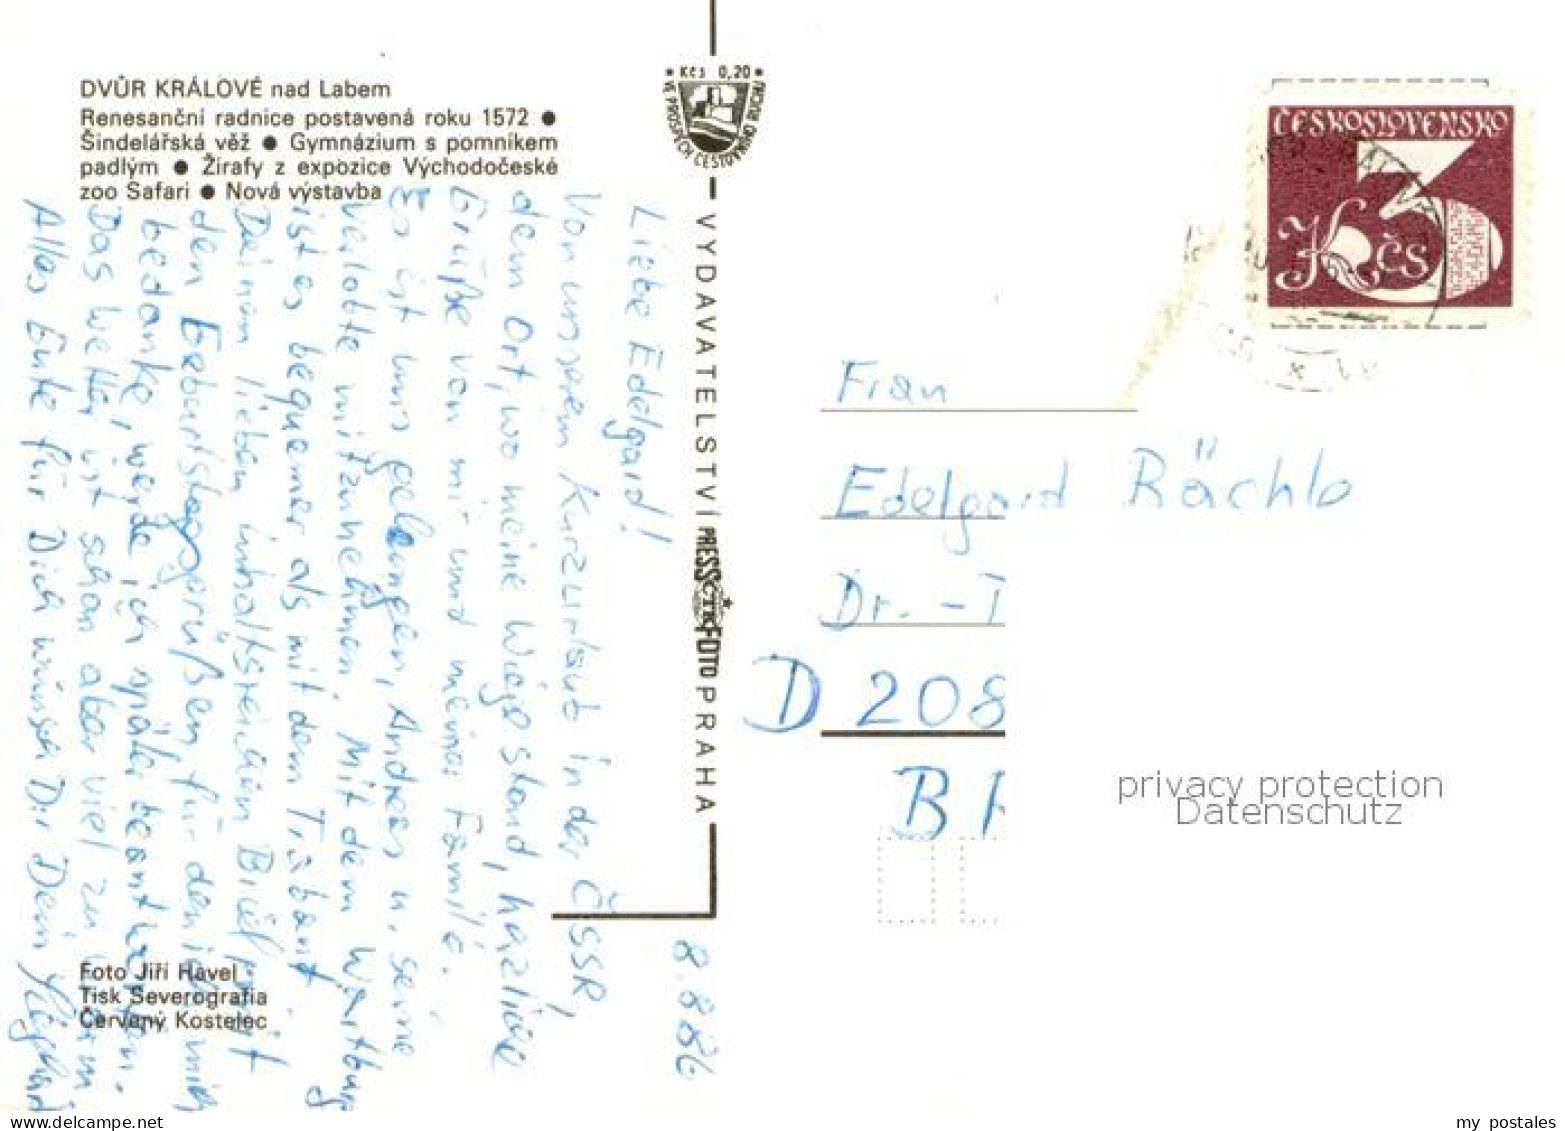 DVŮR KRÁLOVÉ nad Labem
Renesanční radnice postavená roku 1572 ●
Šindelářská věž ● Gymnázium s pomníkem
padlým ● Žirafy z expozice Východočeské
zoo Safari ● Nová výstavba
Kčs 0,20
VE PROSPĚCH CESTOVNÍHO RUCHU
VYDAVATELSTVÍ PRESSFOTO PRAHA
ČESKOSLOVENSKO
3 Kčs
8.8.86
Liebe Edelgard!
Von unserem Kurzurlaub in der ČSSR,
dem Ort, wo meine Wiege stand, herzliche
Grüße von mir und meiner Familie.
Es ist uns gelungen, Andreas u. seine
Verlobte mitzunehmen. Mit dem Wartburg
ist es bequemer als mit dem Trabant.
Deinen lieben inhaltsreichen Brief mit
den Geburtstagsgrüßen für den ich mich
bedanke, werde ich später beantworten.
Das Wetter ist schön aber viel zu warm.
Alles Gute für Dich wünscht Dir Dein
Frau
Edelgard Rächlo
Dr. -
D 208
B
Foto Jiří Havel
Tisk Severografia
Červený Kostelec
privacy protection
Datenschutz
my postales